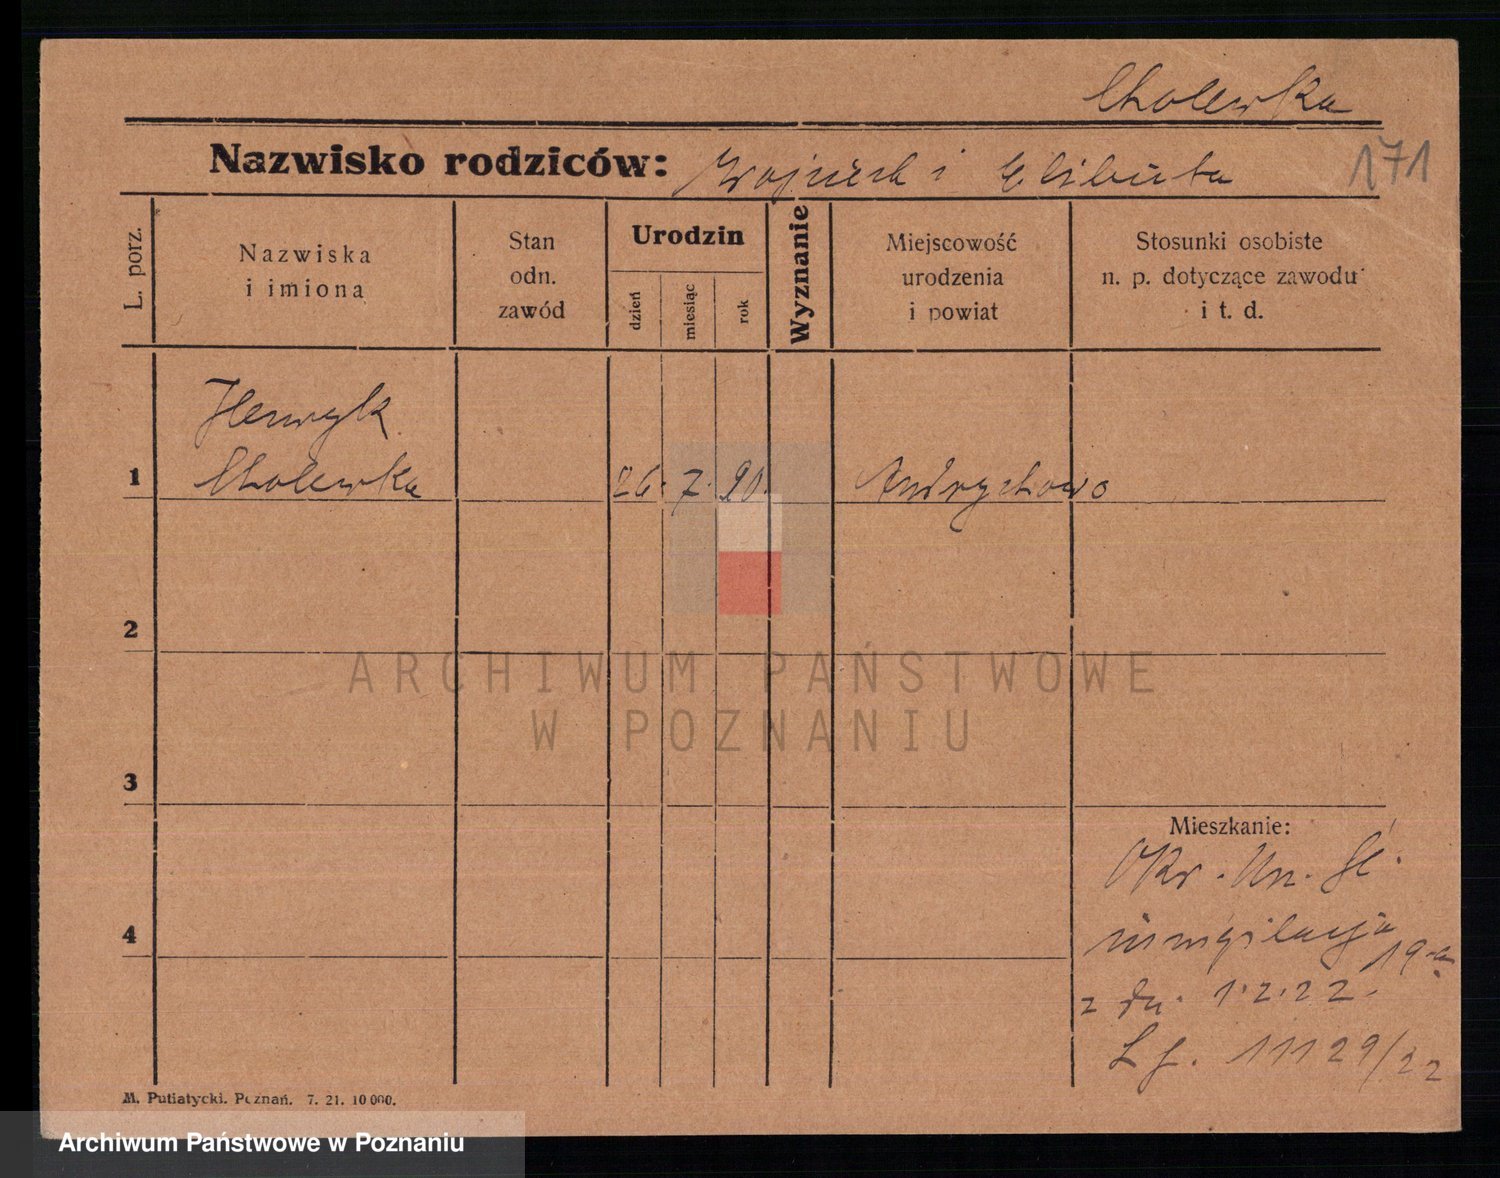 Cholewka
Nazwisko rodziców: Wojciech i Elżbieta
171
L. porz.
Nazwiska
i imiona
Stan
odn.
zawód
Urodzin
dzień
miesiąc
rok
Wyznanie
Miejscowość
urodzenia
i powiat
Stosunki osobiste
n. p. dotyczące zawodu
i t. d.
Henryk
1 Cholewka 26. 7. 90. Andrychowo
2
ARCHIWUM PAŃSTWOWE
W POZNANIU
3
Mieszkanie:
Okr. Un.
4
z dn. 1.2.22.
11129/22
M. Putiatycki. Poznań. 7. 21. 10 000.
Archiwum Państwowe w Poznaniu